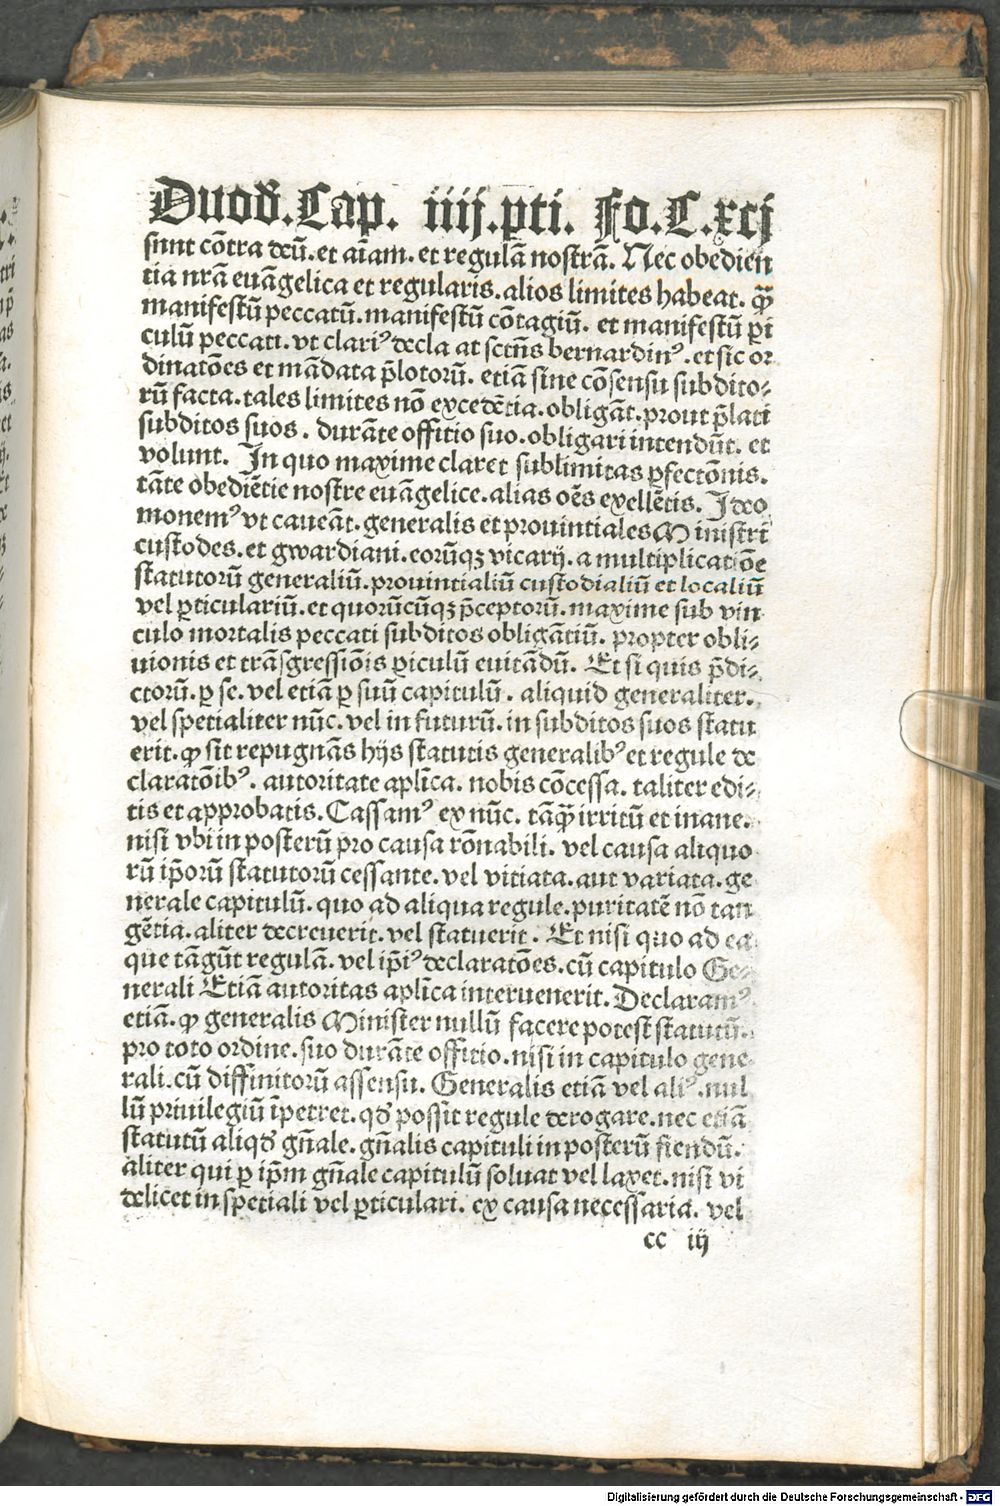 Duod̛.Cap. iiij.pti. Fo.C.xcj
sunt cōtra deū.et aīam.et regulā nostrā. Nec obedien
tia nrā euāgelica et regularis.alios limites habeat. qꝫ̄
manifestū peccatū.manifestū cōtagiū. et manifestū ꝑi
culū peccati.vt clariꝰ decla at sctn̄s bernardinꝰ.et sic or
dinatōes et mādata p̄lotorū. etiā sine cōsensu subdito⸗
rū facta.tales limites nō excedētia.obligāt.prout p̄lati
subditos suos. durāte offitio suo.obligari intendūt. et
volunt. In quo maxime claret sublimitas ꝑfectōnis.
tāte obediētie nostre euāgelice.alias oēs exellētis. Ideo
monemꝰ vt caueāt.generalis et prouintiales Ministri
custodes.et gwardiani.eorūqꝫ vicarij.a multiplicatiōe
statutorū generaliū.prouintialiū custodialiū et localiū
vel ꝑticulariū.et quorūcūqꝫ p̄ceptorū.maxime sub vin
culo mortalis peccati subditos obligātiū. propter obli⸗
uionis et trāsgressiōis ꝑiculū euitādū. Et si quis p̄di⸗
ctorū.ꝑ se.vel etiā ꝑ suū capitulū. aliquid generaliter.
vel spetialiter nūc.vel in futurū.in subditos suos statu
erit.ꝙ sit repugnās hijs statutis generalibꝰ et regule de
claratōibꝰ. autoritate apl̄ica. nobis cōcessa. taliter edi⸗
tis et approbatis.Cassamꝰ ex nūc. tāꝙ̄ irritū et inane.
nisi vbi in posterū pro causa rōnabili. vel causa aliquo
rū ip̄orū statutorū cessante.vel vitiata.aut variata.ge
nerale capitulū.quo ad aliqua regule.puritatē nō tan
gētia.aliter decreuerit.vel statuerit. Et nisi quo ad ea
que tāgūt regulā.vel ip̄iꝰ declaratōes.cū capitulo Ge⸗
nerali Etiā autoritas apl̄ica interuenerit.Declaramꝰ
etiā.ꝙ generalis Minister nullū facere potest statutū.
pro toto ordine.suo durāte offitio.nisi in capitulo gene
rali.cū diffinitorū assensu. Generalis etiā vel aliꝰ.nul
lū priuilegiū īpetret.qd̛ possit regule derogare.nec etiā
statutū aliqd̛ gn̄ale.gn̄alis capituli in posterū fiendū.
aliter qui ꝑ ip̄m gn̄ale capitulū soluat vel laxet.nisi vi
delicet in spetiali vel ꝑticulari. ex causa necessaria. vel
cc iij
Digitalisierung gefördert durch die Deutsche Forschungsgemeinschaft - DFG